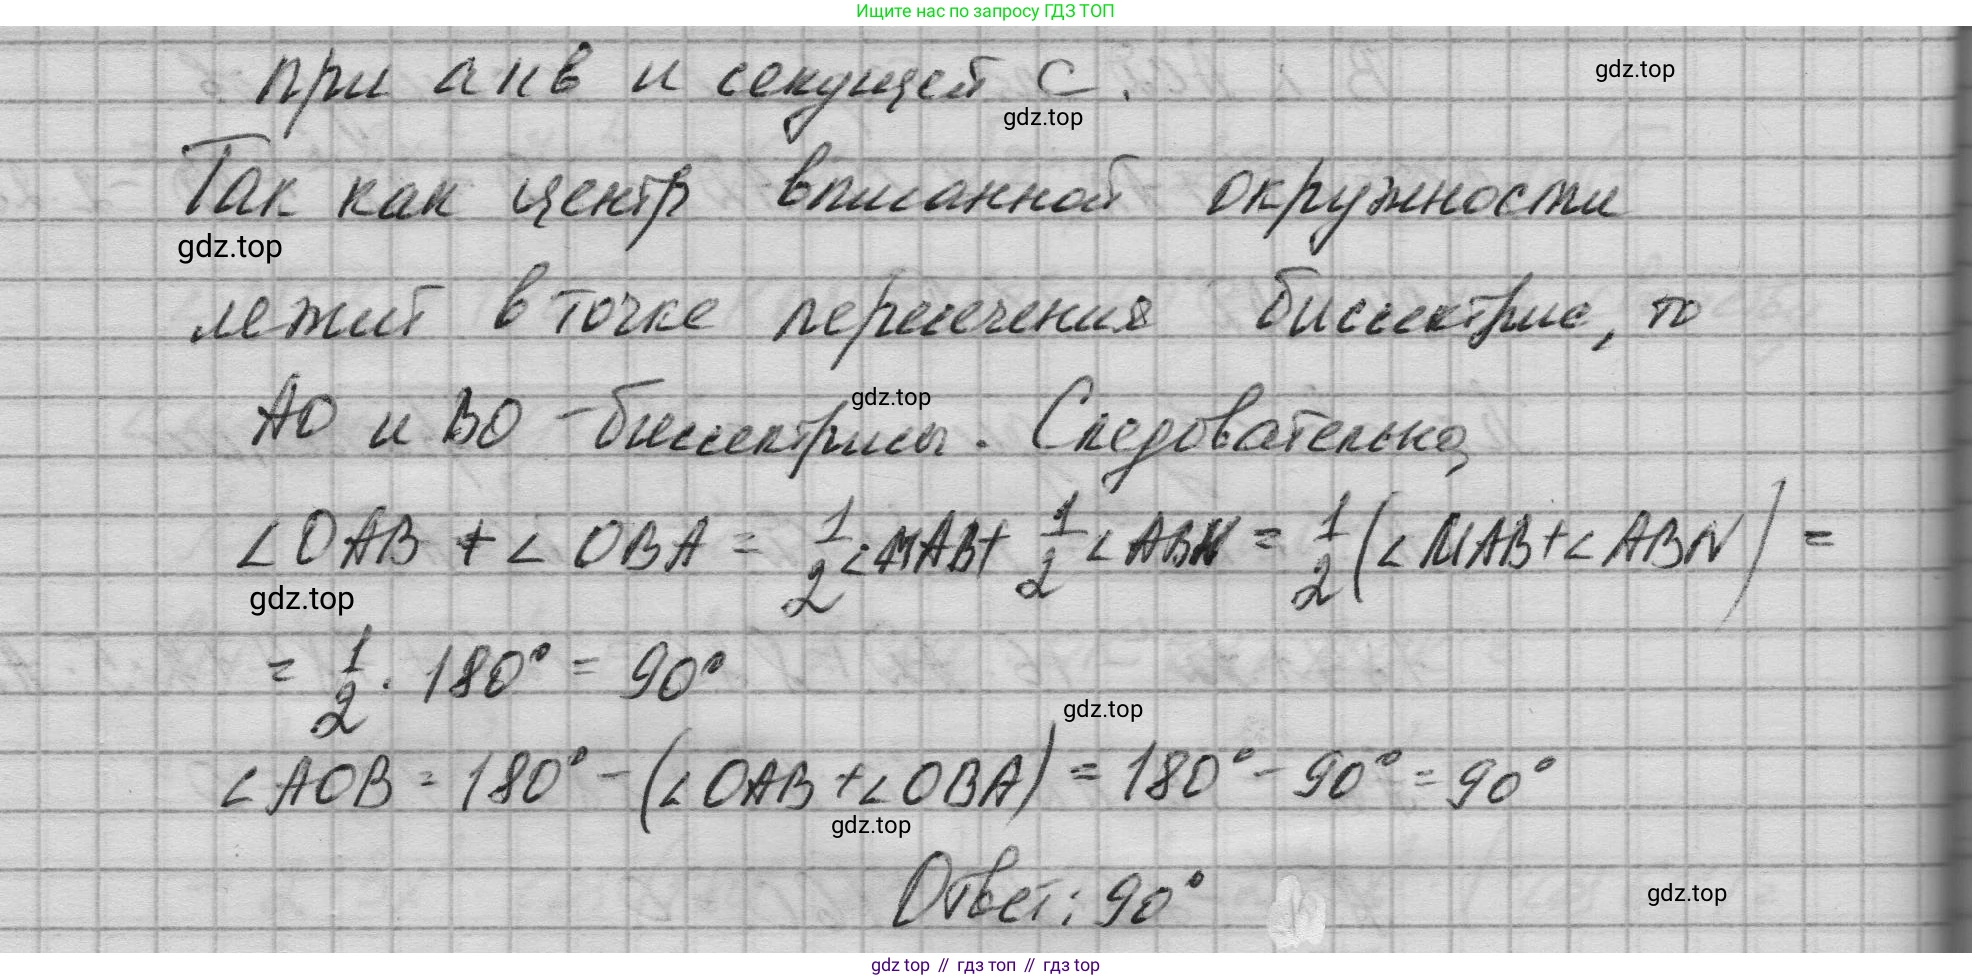 Ищите нас по запросу ГДЗ ТОП
при a и в и секущей c.
gdz.top
gdz.top
Так как центр вписанной окружности
gdz.top
лежит в точке пересечения биссектрис, то
gdz.top
АО и ВО - биссектрисы. Следовательно,
∠OAB + ∠OBA = 1/2 ∠MAB + 1/2 ∠ABN = 1/2 (∠MAB + ∠ABN) =
gdz.top
= 1/2 · 180° = 90°
gdz.top
∠AOB = 180° - (∠OAB + ∠OBA) = 180° - 90° = 90°
gdz.top
Ответ: 90°
gdz.top
gdz top // гдз топ // гдз top